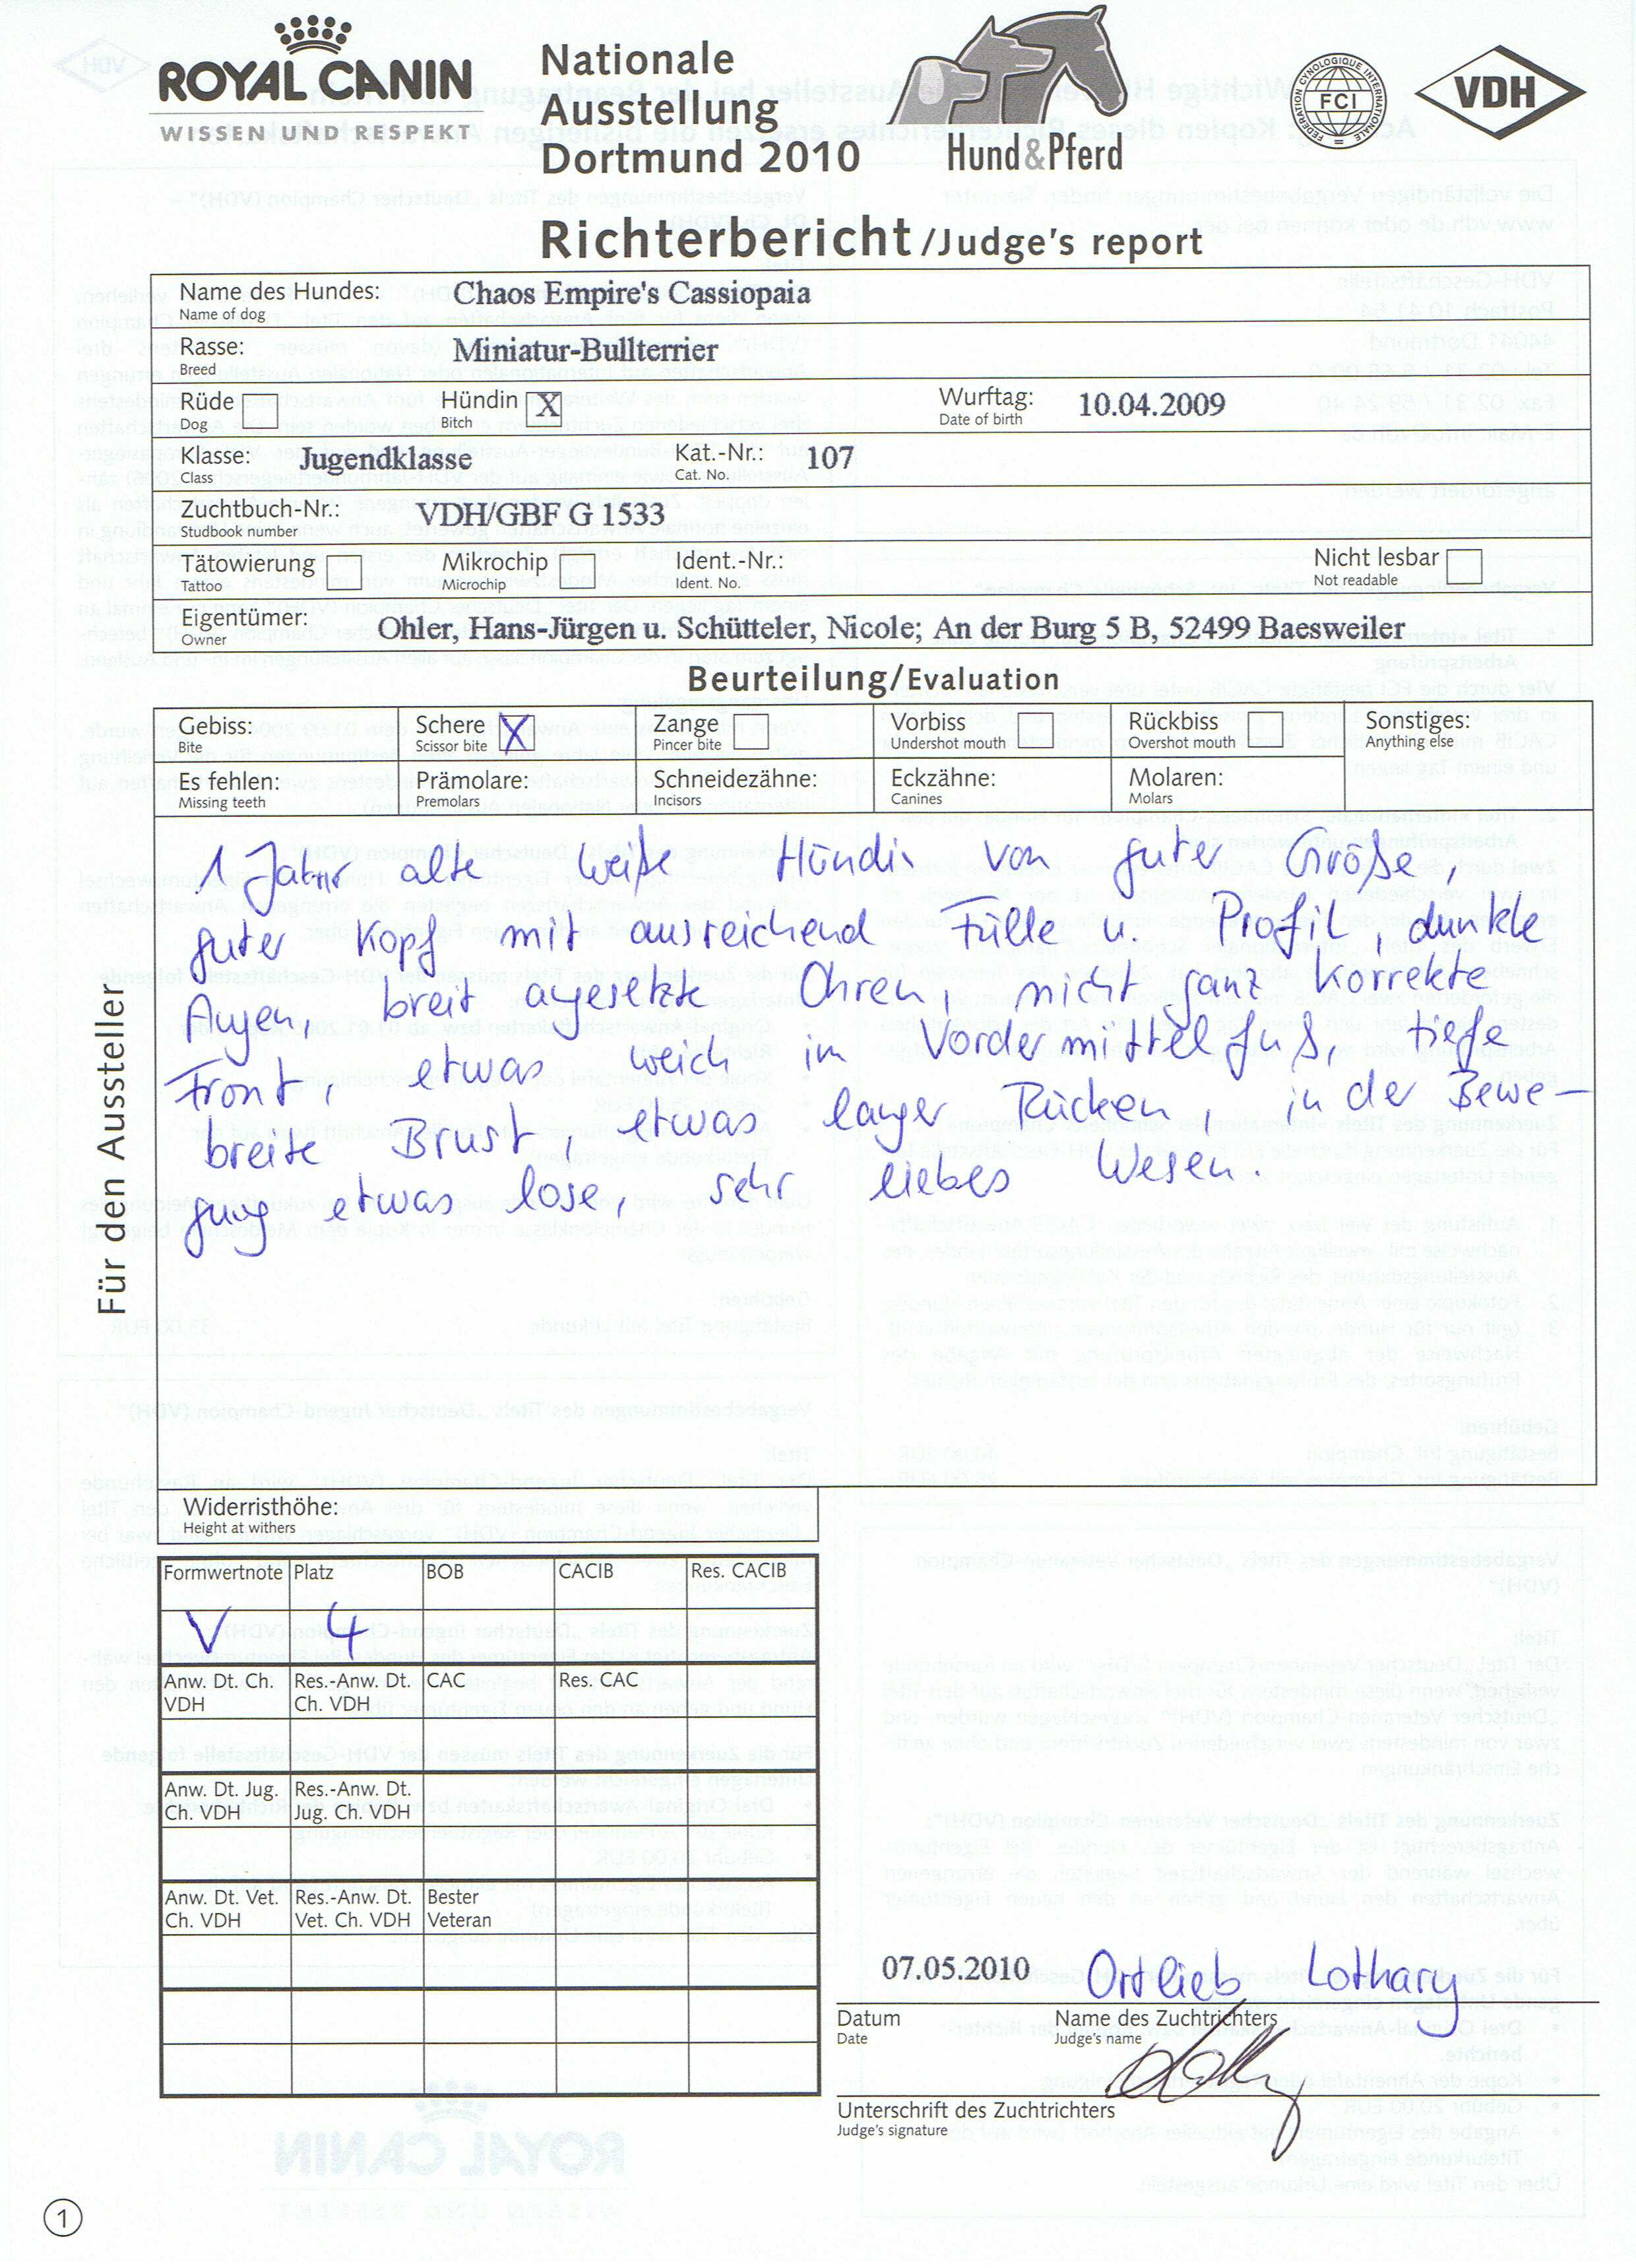 ROYAL CANIN
WISSEN UND RESPEKT
Nationale
Ausstellung
Dortmund 2010
Hund&Pferd
FEDERATION CYNOLOGIQUE INTERNATIONALE
FCI
VDH
Richterbericht/Judge's report
Name des Hundes: Chaos Empire's Cassiopaia
Name of dog
Rasse: Miniatur-Bullterrier
Breed
Rüde Hündin X Wurftag: 10.04.2009
Dog Bitch Date of birth
Klasse: Jugendklasse Kat.-Nr.: 107
Class Cat. No.
Zuchtbuch-Nr.: VDH/GBF G 1533
Studbook number
Tätowierung Mikrochip Ident.-Nr.: Nicht lesbar
Tattoo Microchip Ident. No. Not readable
Eigentümer: Ohler, Hans-Jürgen u. Schütteler, Nicole; An der Burg 5 B, 52499 Baesweiler
Owner
Beurteilung/Evaluation
Gebiss: Schere X Zange Vorbiss Rückbiss Sonstiges:
Bite Scissor bite Pincer bite Undershot mouth Overshot mouth Anything else
Es fehlen: Prämolare: Schneidezähne: Eckzähne: Molaren:
Missing teeth Premolars Incisors Canines Molars
Für den Aussteller
1 Jahr alte weiße Hündin von guter Größe,
guter Kopf mit ausreichend Fülle u. Profil, dunkle
Augen, breit angesetzte Ohren, nicht ganz korrekte
Front, etwas weich im Vordermittelfuß, tiefe
breite Brust, etwas langer Rücken, in der Bewe-
gung etwas lose, sehr liebes Wesen.
Widerristhöhe:
Height at withers
Formwertnote Platz BOB CACIB Res. CACIB
V 4
Anw. Dt. Ch. Res.-Anw. Dt. CAC Res. CAC
VDH Ch. VDH
Anw. Dt. Jug. Res.-Anw. Dt.
Ch. VDH Jug. Ch. VDH
Anw. Dt. Vet. Res.-Anw. Dt. Bester
Ch. VDH Vet. Ch. VDH Veteran
07.05.2010 Ortlieb Lothary
Datum Name des Zuchtrichters
Date Judge's name
Unterschrift des Zuchtrichters
Judge's signature
1